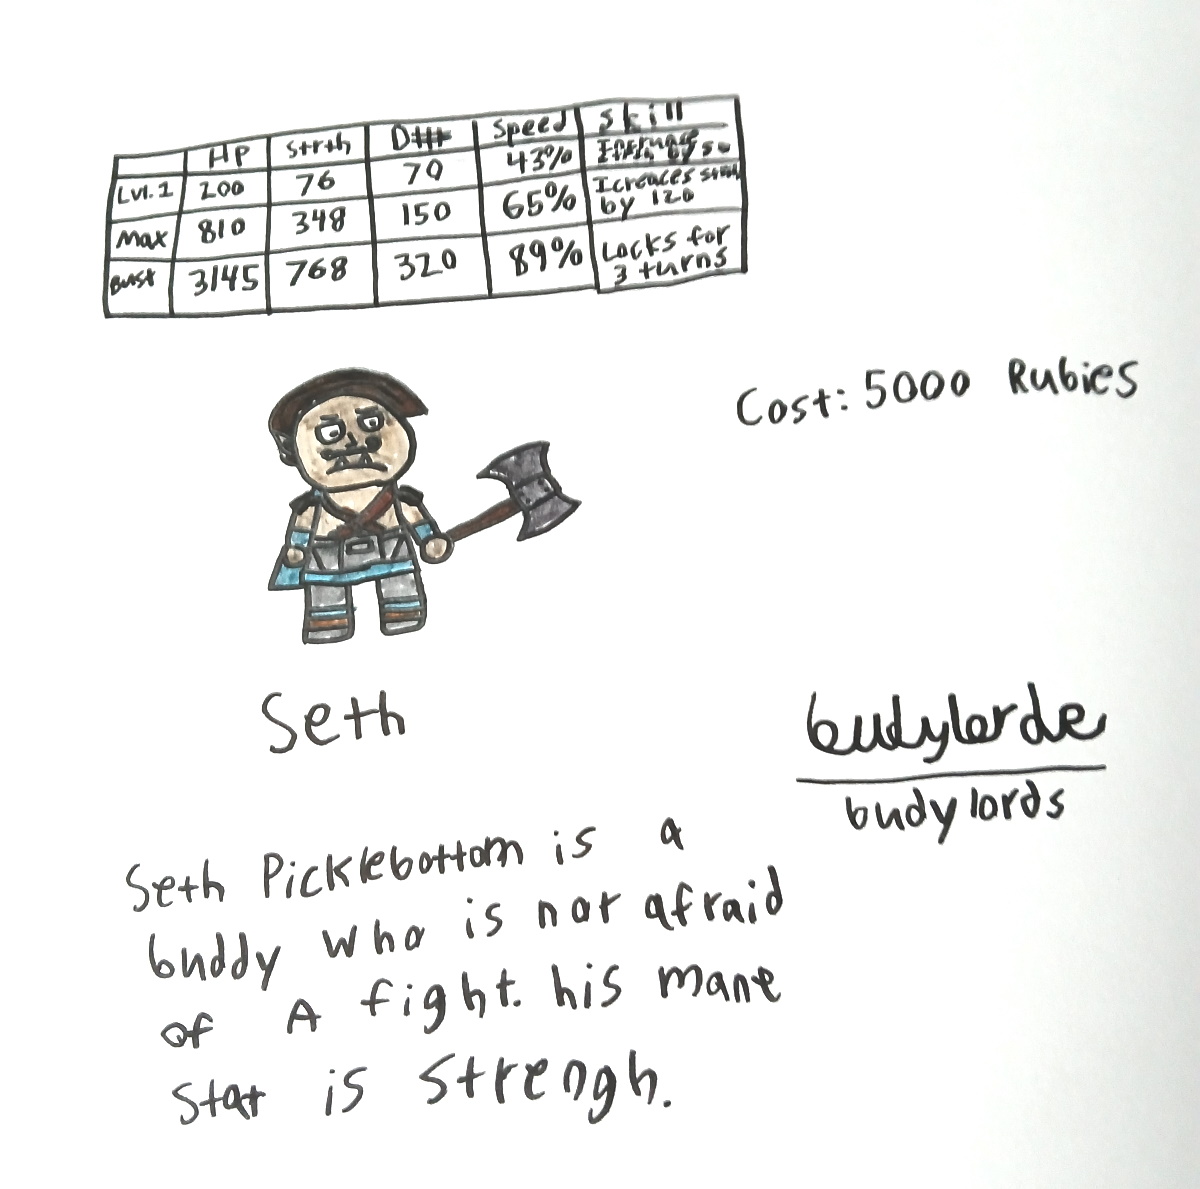 HP Strth Speed Skill
Lvl. 1 200 76 70 43% by 50
Max 810 348 150 65% Icreaces by 120
Burst 3145 768 320 89% Locks for 3 turns
Cost: 5000 Rubies
Seth
budylorde
budylords
Seth Picklebottom is a
buddy who is not afraid
of A fight. his mane
stat is strengh.